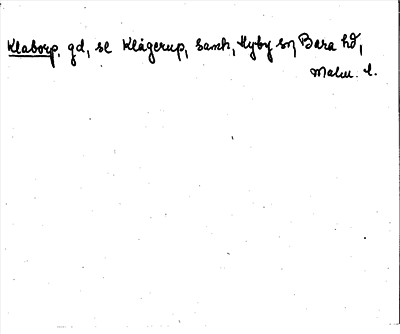 Klaborp. gd, se Klågerup, samh, Hyby sn, Bara hd,
Malm. l.